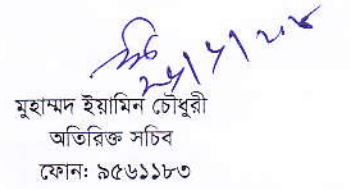 মুহাম্মদ ইয়ামিন চৌধুরী
অতিরিক্ত সচিব
ফোন: ৯৫৬১১৮৩